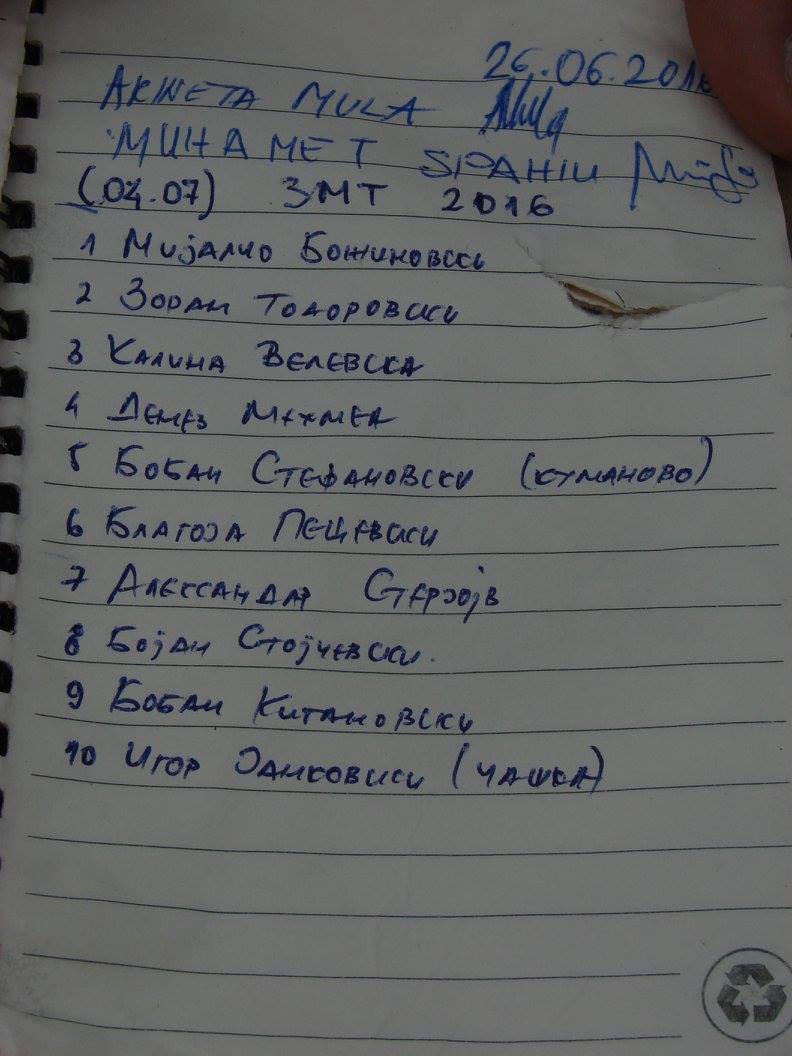 26.06.2016
AKIЖETA MULA
MUHAMET SPAHIU
(04.07) ЗМТ 2016
1 Мијалчо Божиновски
2 Зоран Тодоровски
3 Калина Велевска
4 Денез Мехмед
5 Бобан Стефановски (Куманово)
6 Благоја Пецевски
7 Александар Стерјов
8 Бојан Стојчевски.
9 Бобан Китановски
10 Игор Јанковски (Чашка)